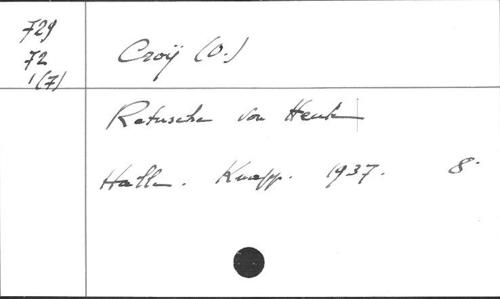 729
72
1(7)
Croÿ (O.)
Retusche von Heute
Halle. Knapp. 1937. 8.